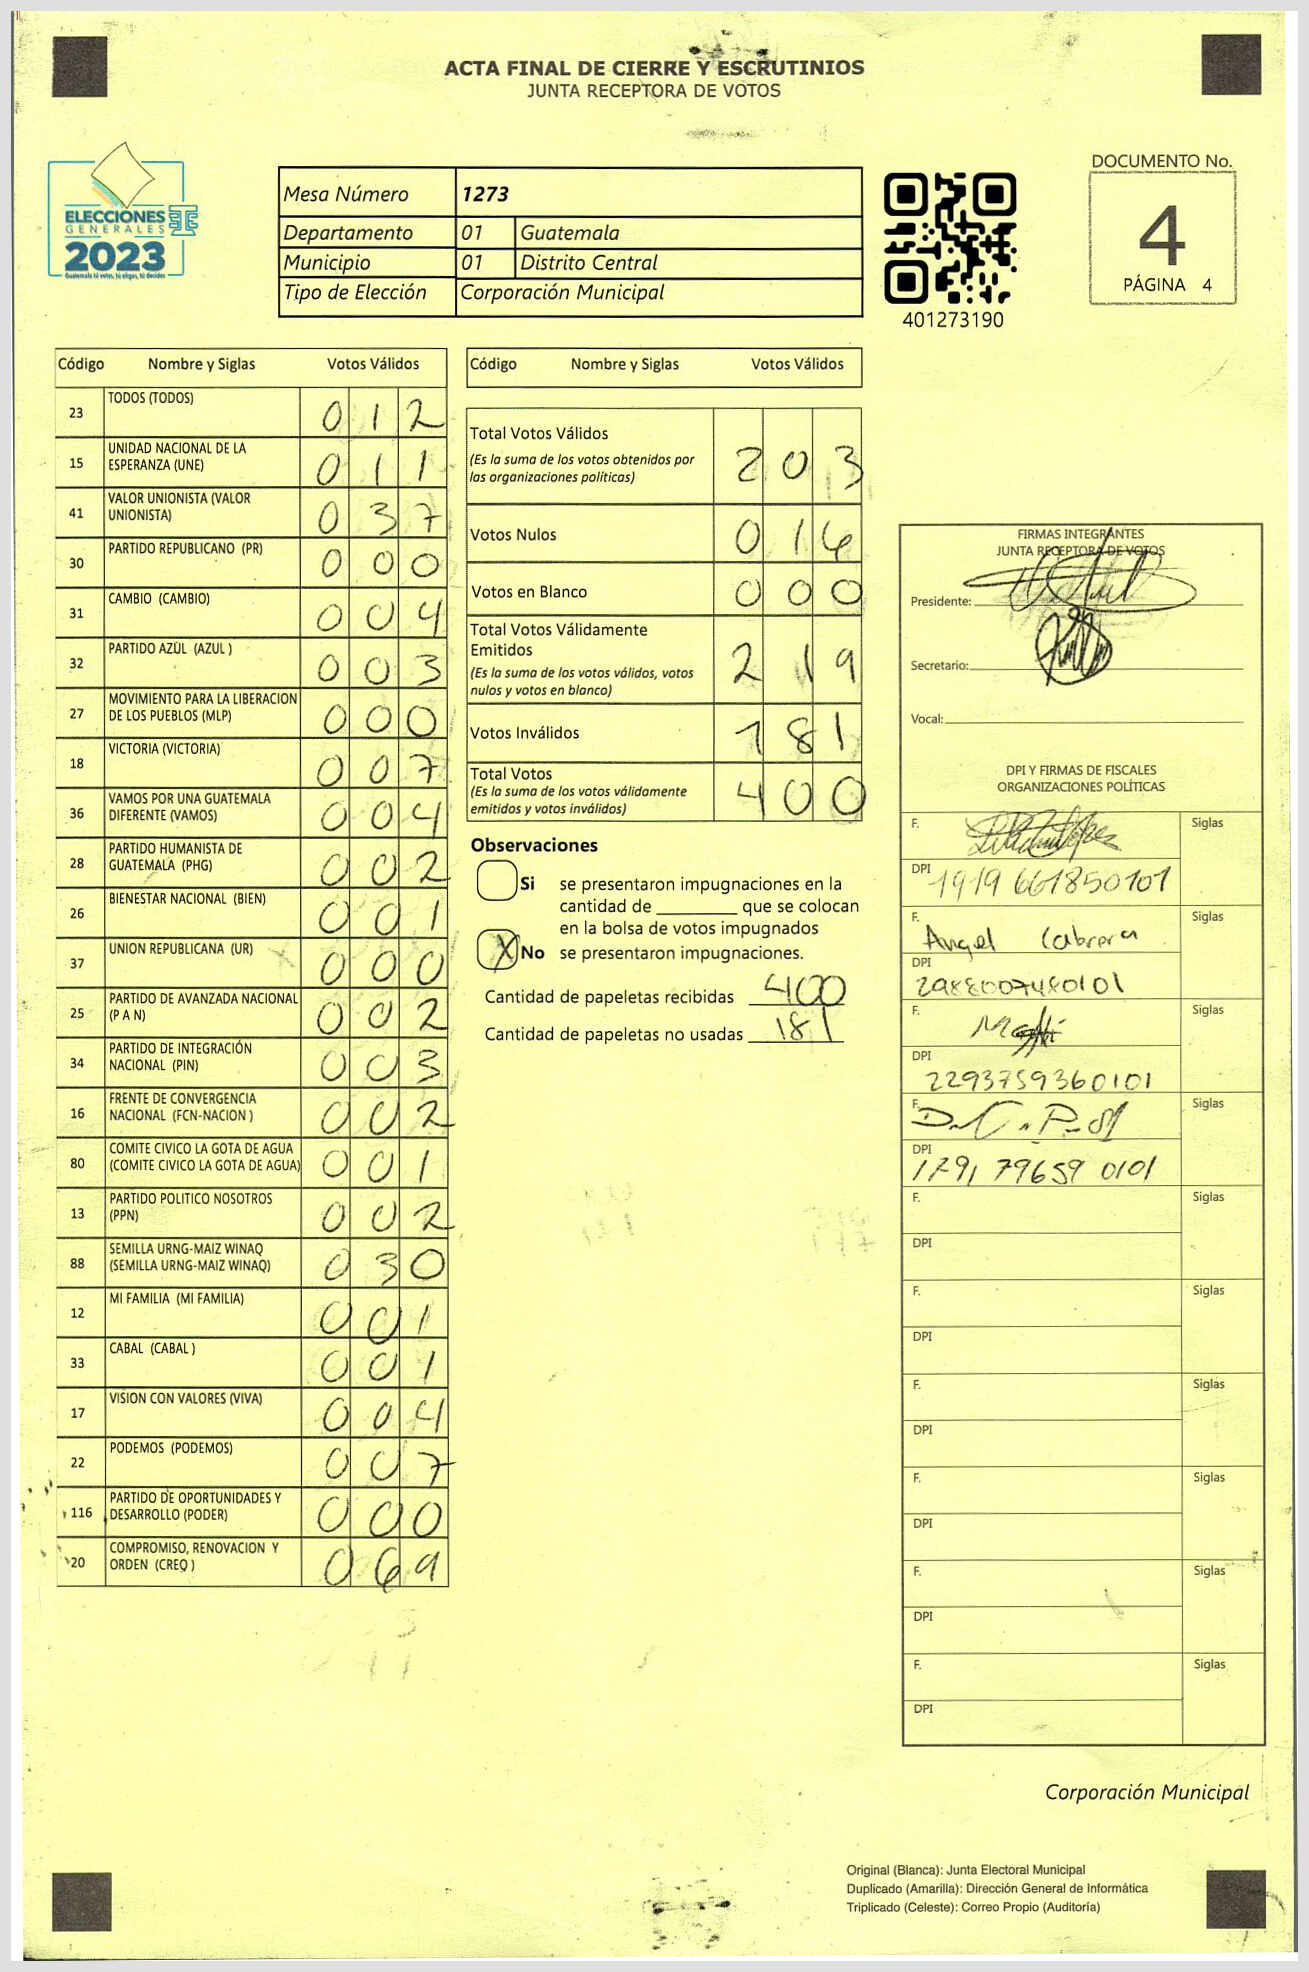 ACTA FINAL DE CIERRE Y ESCRUTINIOS
JUNTA RECEPTORA DE VOTOS
ELECCIONES
GENERALES
2023
Guatemala tú votas, tú eliges, tú decides
Mesa Número 1273
Departamento 01 Guatemala
Municipio 01 Distrito Central
Tipo de Elección Corporación Municipal
401273190
DOCUMENTO No.
4
PÁGINA 4
Código Nombre y Siglas Votos Válidos
23 TODOS (TODOS) 0 1 2
15 UNIDAD NACIONAL DE LA
ESPERANZA (UNE) 0 1 1
41 VALOR UNIONISTA (VALOR
UNIONISTA) 0 3 7
30 PARTIDO REPUBLICANO (PR) 0 0 0
31 CAMBIO (CAMBIO) 0 0 4
32 PARTIDO AZUL (AZUL ) 0 0 3
27 MOVIMIENTO PARA LA LIBERACION
DE LOS PUEBLOS (MLP) 0 0 0
18 VICTORIA (VICTORIA) 0 0 7
36 VAMOS POR UNA GUATEMALA
DIFERENTE (VAMOS) 0 0 4
28 PARTIDO HUMANISTA DE
GUATEMALA (PHG) 0 0 2
26 BIENESTAR NACIONAL (BIEN) 0 0 1
37 UNION REPUBLICANA (UR) 0 0 0
25 PARTIDO DE AVANZADA NACIONAL
(P A N) 0 0 2
34 PARTIDO DE INTEGRACIÓN
NACIONAL (PIN) 0 0 3
16 FRENTE DE CONVERGENCIA
NACIONAL (FCN-NACION ) 0 0 2
80 COMITE CIVICO LA GOTA DE AGUA
(COMITE CIVICO LA GOTA DE AGUA) 0 0 1
13 PARTIDO POLITICO NOSOTROS
(PPN) 0 0 2
88 SEMILLA URNG-MAIZ WINAQ
(SEMILLA URNG-MAIZ WINAQ) 0 3 0
12 MI FAMILIA (MI FAMILIA) 0 0 1
33 CABAL (CABAL ) 0 0 1
17 VISION CON VALORES (VIVA) 0 0 4
22 PODEMOS (PODEMOS) 0 0 7
116 PARTIDO DE OPORTUNIDADES Y
DESARROLLO (PODER) 0 0 0
20 COMPROMISO, RENOVACION Y
ORDEN (CREO ) 0 6 9
Código Nombre y Siglas Votos Válidos
Total Votos Válidos
(Es la suma de los votos obtenidos por
las organizaciones políticas) 2 0 3
Votos Nulos 0 1 6
Votos en Blanco 0 0 0
Total Votos Válidamente
Emitidos
(Es la suma de los votos válidos, votos
nulos y votos en blanco) 2 1 9
Votos Inválidos 1 8 1
Total Votos
(Es la suma de los votos válidamente
emitidos y votos inválidos) 4 0 0
Observaciones
Si se presentaron impugnaciones en la
cantidad de ________ que se colocan
en la bolsa de votos impugnados
X No se presentaron impugnaciones.
Cantidad de papeletas recibidas 400
Cantidad de papeletas no usadas 181
FIRMAS INTEGRANTES
JUNTA RECEPTORA DE VOTOS
Presidente:
Secretario:
Vocal:
DPI Y FIRMAS DE FISCALES
ORGANIZACIONES POLÍTICAS
F. Siglas
DPI 1919 661850101
F. Angel Cabrera Siglas
DPI 2988007480101
F. Siglas
DPI 2293759360101
F. Siglas
DPI 1791 79659 0101
F. Siglas
DPI
F. Siglas
DPI
F. Siglas
DPI
F. Siglas
DPI
F. Siglas
DPI
F. Siglas
DPI
Corporación Municipal
Original (Blanca): Junta Electoral Municipal
Duplicado (Amarilla): Dirección General de Informática
Triplicado (Celeste): Correo Propio (Auditoría)